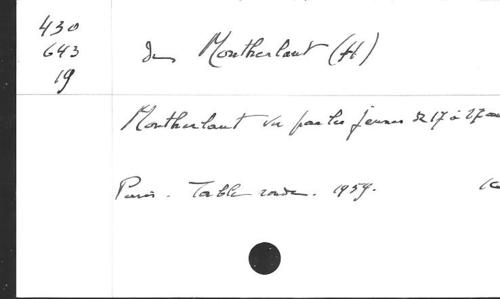 430
643
19
de Montherlant (H)
Montherlant vu par les jeunes de 17 à 27 an
Paris. Table ronde. 1959.